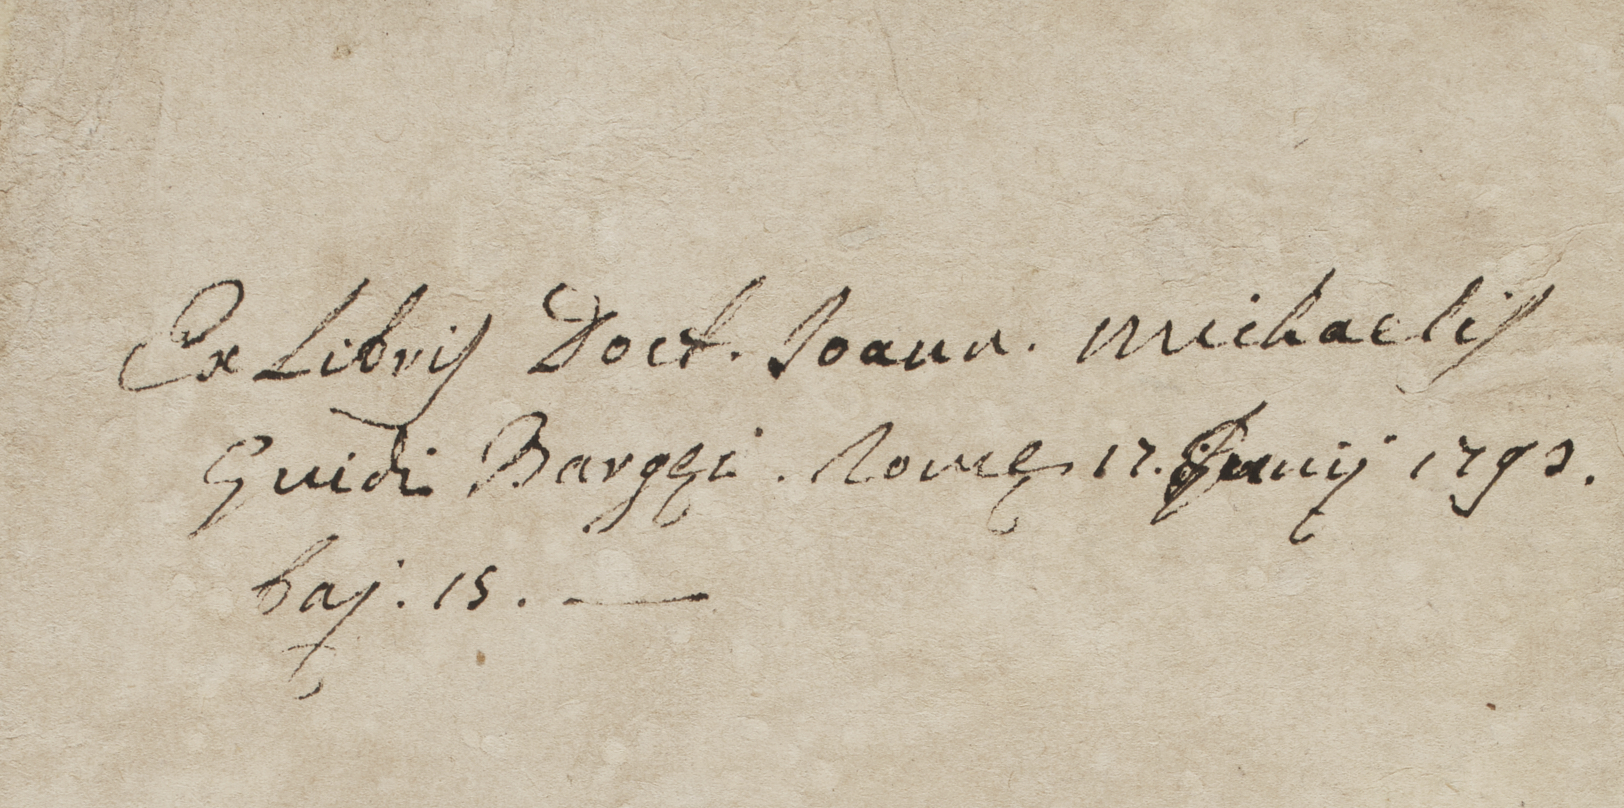 Ex Libris Doct. Joann. Michaelis
Guidi Bargęi. Romę 17. Junij 1792.
baj. 15. —